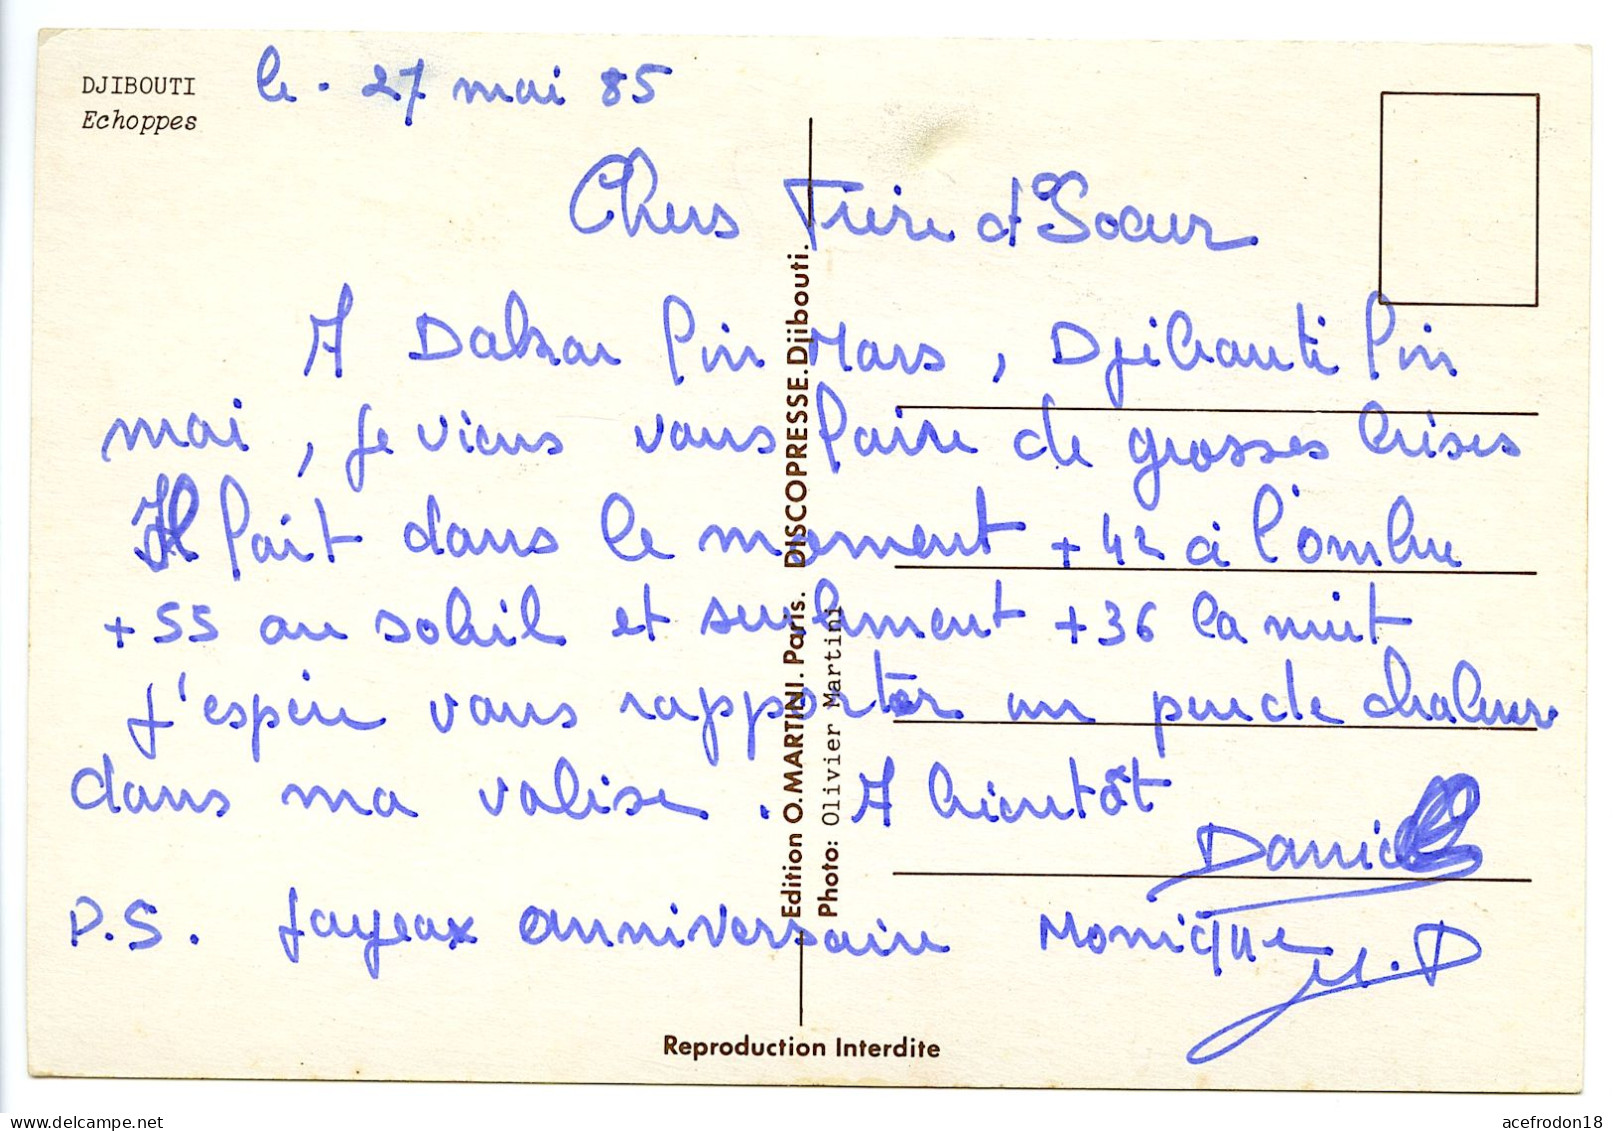 DJIBOUTI
Echoppes
le - 27 mai 85
Chers Frère et Soeur
A Dakar fin Mars, Djibouti fin
mai, je viens vous faire de grosses bises
Il fait dans le moment +42 à l'ombre
+55 au soleil et seulement +36 la nuit
J'espère vous rapporter un peu de chaleur
dans ma valise. A bientôt
Daniel
P.S. Joyeux anniversaire Monique
M.D
Edition O.MARTINI. Paris. DISCOPRESSE. Djibouti.
Photo: Olivier Martini
Reproduction Interdite
acefrodon18